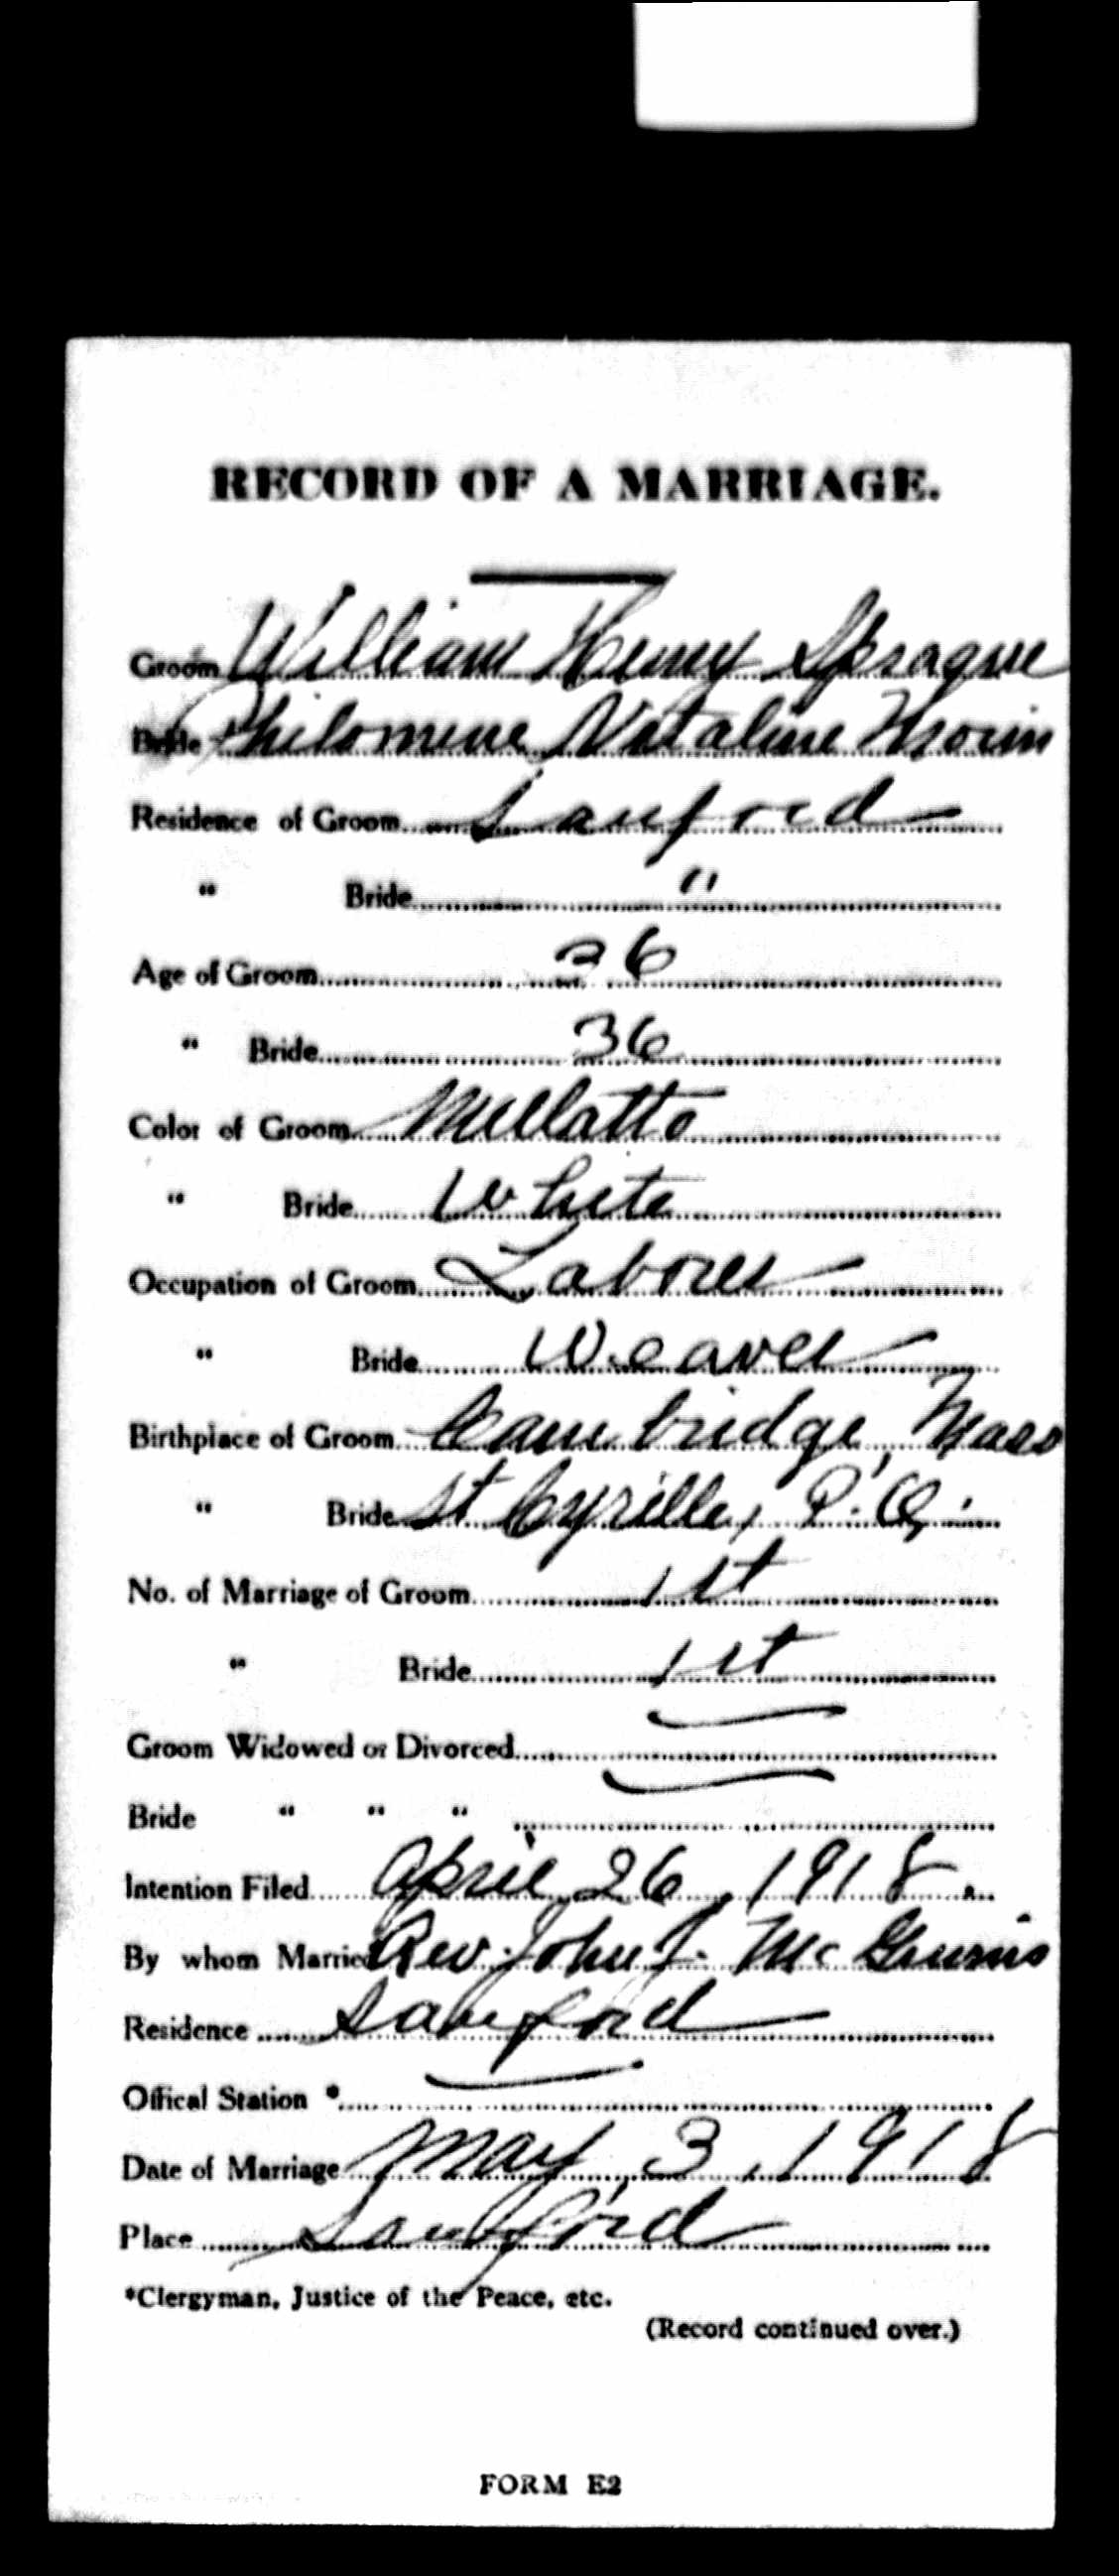 RECORD OF A MARRIAGE.
Groom William Henry Sprague
Bride Philomene Nataline
Residence of Groom Sanford
" Bride "
Age of Groom 26
" Bride 36
Color of Groom Mullatto
" Bride White
Occupation of Groom Laborer
" Bride Weaver
Birthplace of Groom Cambridge, Mass
" Bride St Cyrille, P.Q.
No. of Marriage of Groom 1st
" Bride 1st
Groom Widowed or Divorced
Bride " " "
Intention Filed April 26, 1918.
By whom Married Rev. John J. Mc
Residence Sanford
Offical Station *
Date of Marriage May 3, 1918
Place Sanford
*Clergyman, Justice of the Peace, etc.
(Record continued over.)
FORM E2